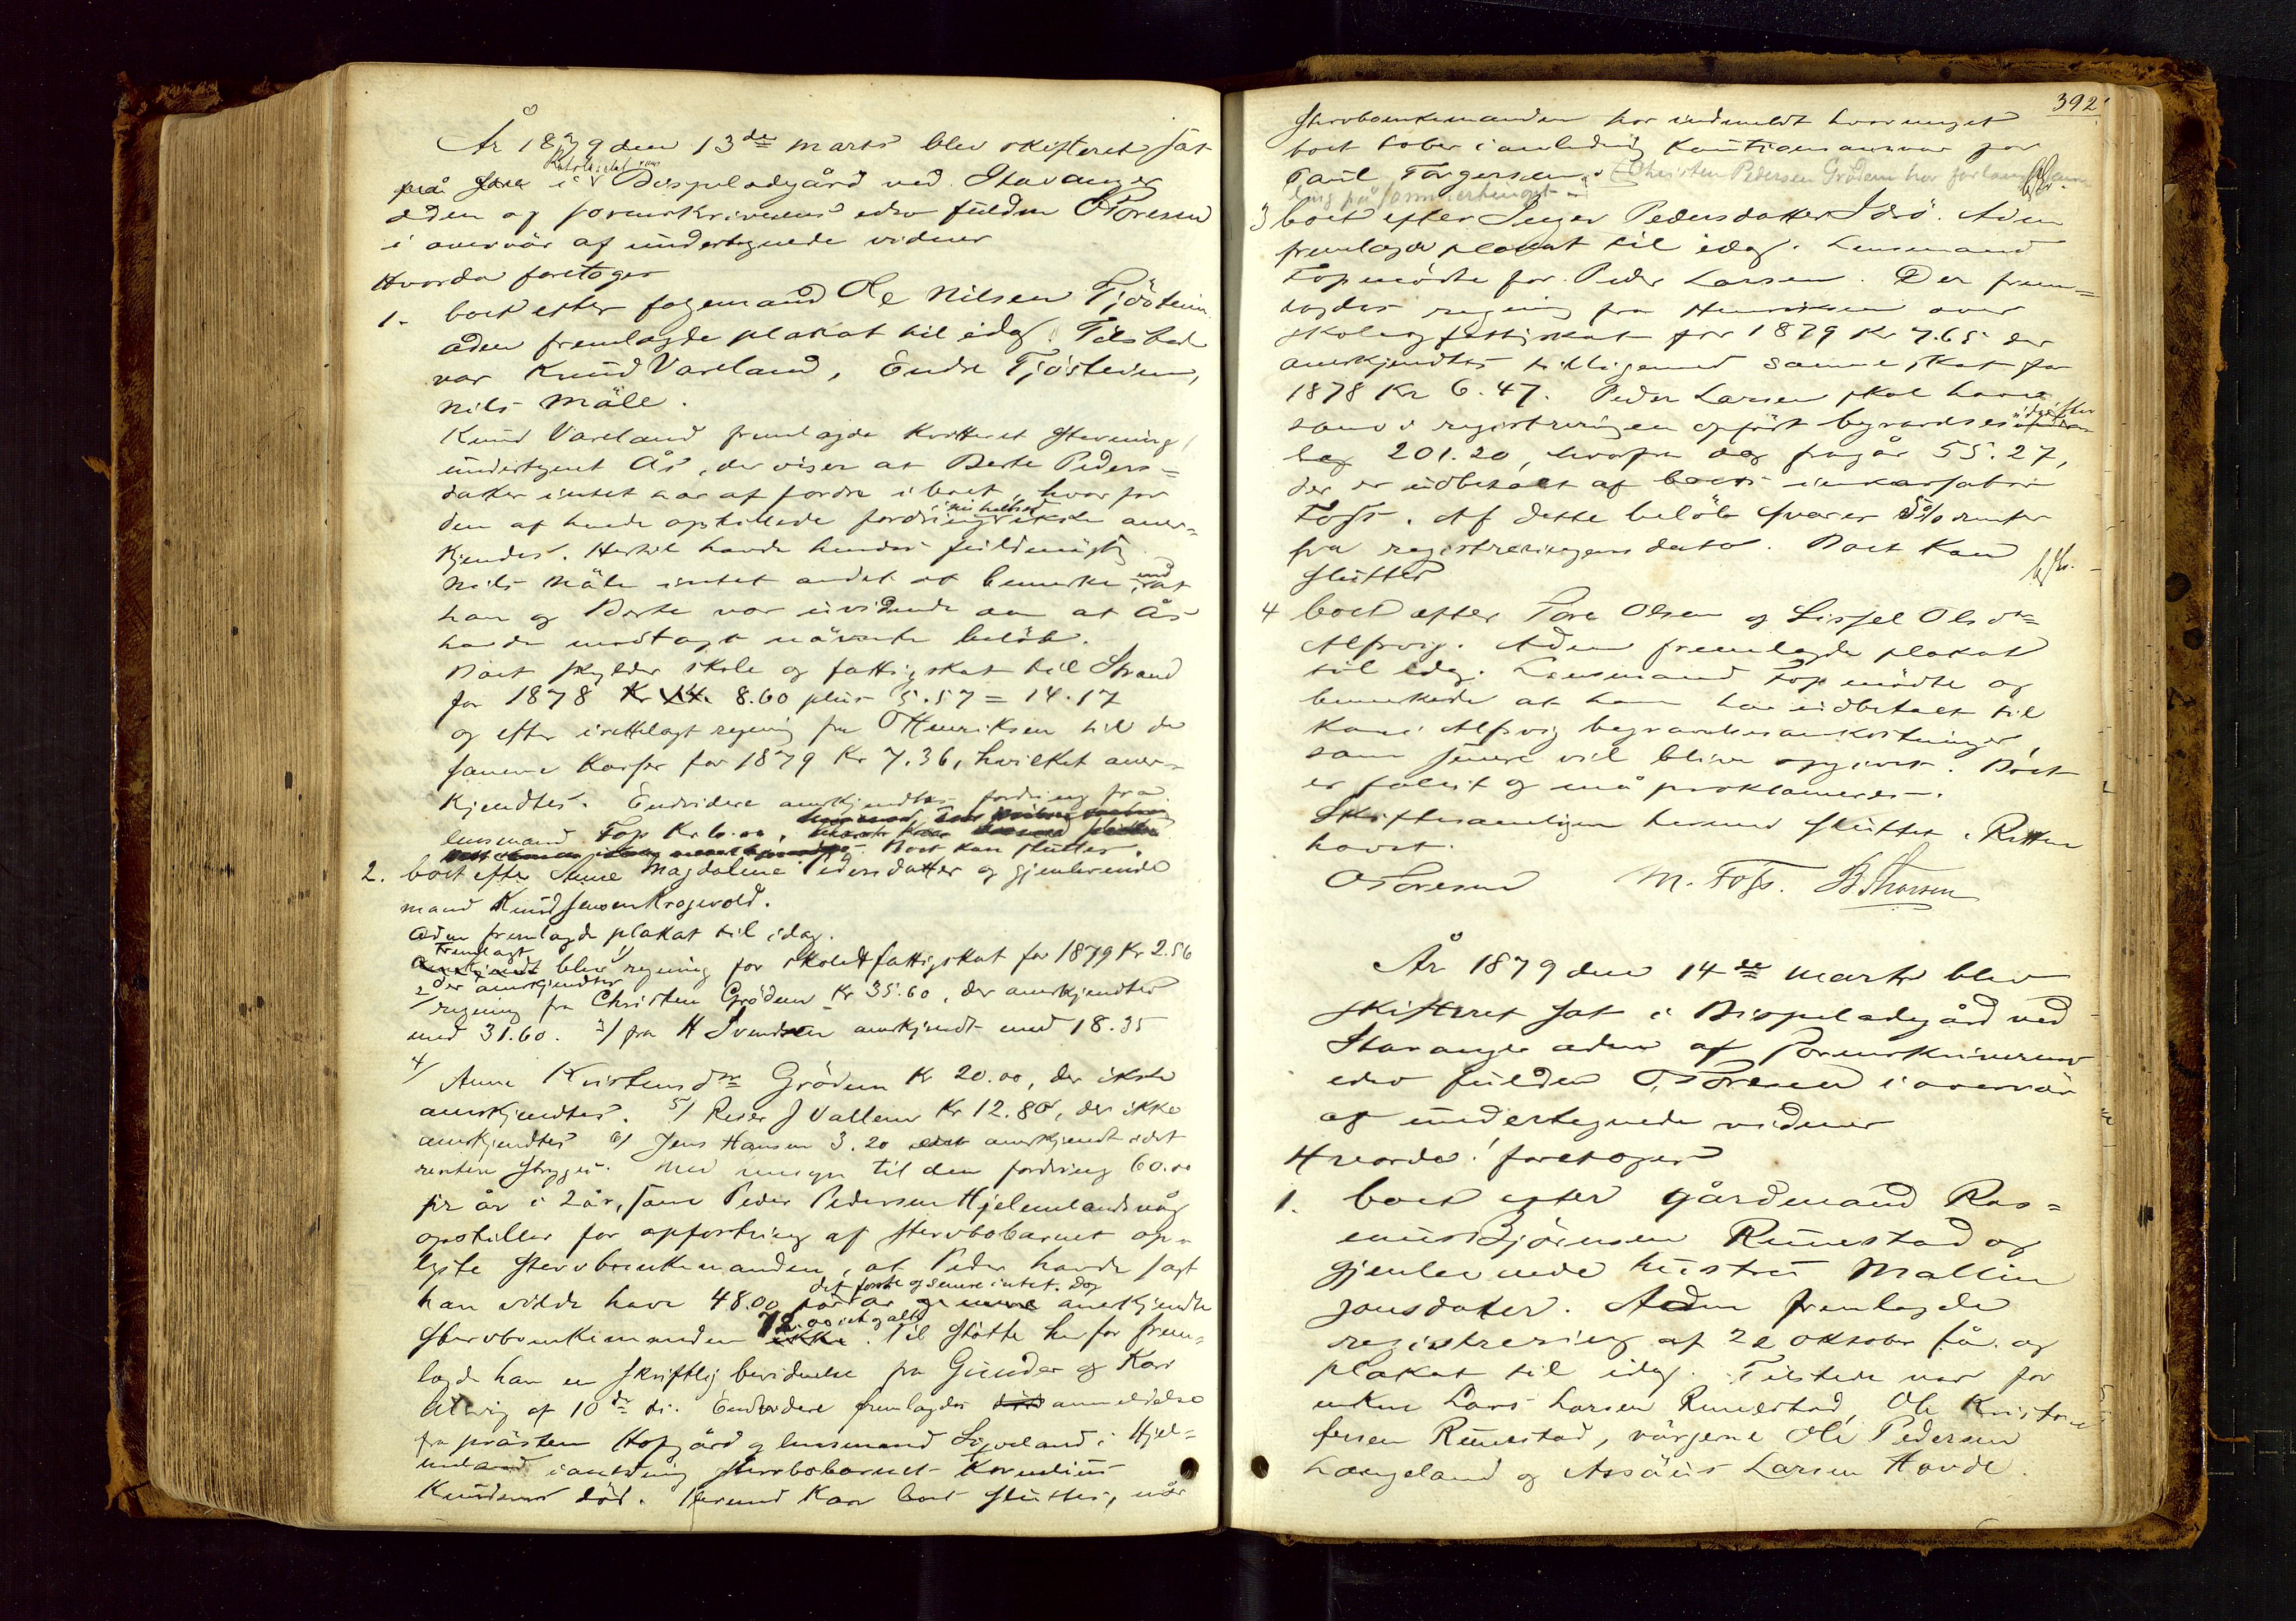 År 1879 den 13de marts blev skifteret sat
på i Bispeladegård ved Stavanger
aden og sorenskriverens edsv fuldm OToresen
i overvær af undertegnede vidner
Hvorda foretoges
1. boet efter Ole Nilsen Tjöstheim
aden fremlagde plakat til idag. Tilstede
var Knud Vareland, Endre Tjöstheim,
Nils Mäle.
Knud Vareland fremlagde kvitteret stevning
undertegnet Ås, der viser at Berte Peders=
datter intet har at fordre i boet, hvorfor
den af hende opstillede fordring ikke aner-
kjendes. Hertil havde hendes fuldmægtig
Nils Mäle intet andet at bemerke end at
han og Berte var uvidende om at Ås
havde modtaget nävnte belöb.
Boet skylder skole og fattigskat til Strand
for 1878 Kr 8.60 plus 5.57 = 14.17
og efter irettelagt regning fra OHenriksen til de
samme Kasser for 1879 Kr 7.36, hvilket aner-
kjendtes. Endvidere anerkjendtes fordring fra
lensmand Foss Kr 6.00,
Boet kan sluttes.
2. boet efter Anne Magdalene Pedersdatter og gjenlevende
mand Knud Jenssen Kragevold.
Aden fremlagde plakat til idag.
Fremlagt blev 1/ regning for skole & fattigskat for 1879 Kr 2.56
der anerkjendtes
2/ regning fra Christen Grödem Kr 35.60, der anerkjendtes
med 31.60. 3/ fra H Svendsen anerkjendt med 18.35
4/ Anne Kristensdtr Grödem Kr 20.00, der ikke
anerkjendtes. 5/ Reier J Vallem Kr 12.80, der ikke
anerkjendtes 6/ Jens Hansen 3.20 anerkjendt idet
renten stryges. Med hensyn til den fordring 60.00
pr år i 2 år, som Peder Pedersen Hjelmelandsvåg
opstiller for opfostring af stervbobarnet op-
lyste stervboenkemanden, at Peder havde sagt
han vilde have 48.00 for det forste og senere intet. Dog anerkjendte
stervboenkemanden 72.00 i et og alt. Til stötte herfor frem-
lagde han en skriftlig bevidnelse fra Gunder og Kari
Alsvig af 10de ds. Endvidere fremlagdes anmeldelse
fra prästen Hofgård og lensmand Sigveland i Hjel=
meland i anledning stervbobarnet Kornelius
Knudsens död. Hermed kan boet sluttes, når
392
stervboenkemanden har indmeldt hvormeget
boet taber i anledning kautionsansvar for
Paul Torgersen. Christen Pedersen Grödem har forlangt
på sommerthinget
3 boet efter Inger Pedersdatter Idsö. Aden
fremlagde plakat til idag. Lensmand
Foss mödte for Peder Larsen. Der frem=
lagdes regning fra Henriksen over
skole og fattigskat for 1879 Kr 7.65 der
anerkjendtes tilligemed samme skat for
1878 Kr 6.47. Peder Larsen skal have
som i registreringen opfört begravelsesudgifter
201.20, hvorfra dog frogår 55.27,
der er udbetalt af boets inkassator
Foss. Af dette belöb svares 5% renter
fra registreringens dato. Boet kan
sluttes
4 boet efter Tore Olsen og Sissel Olsdtr
Alsvig. Aden fremlagde plakat
til idag. Lensmand Foss mödte og
bemerkede at han har udbetalt til
Kari Alsvig begravelsesomkostninger,
som senere vil blive opgivet. Boet
er falit og må proklameres.
Skiftesamlingen hermed sluttet. Retten
hævet.
OToresen M. Foss. B. Thorsen
År 1879 den 14de marts blev
skifteret sat i Bispeladegård ved
Stavanger aden af Sorenskriverens
edsv fuldm OToresen i overvær
af undertegnede vidner
Hvorda foretoges
1. boet efter gårdmand Ras=
mus Björnsen Runestad og
gjenlevende hustru Mallin
Jonsdatter. Aden fremlagde
registrering af 22 oktober f.å. og
plakat til idag. Tilstede var for
enken Lars Larsen Runestad, Ole Kristof=
fersen Runestad, värgerne Ole Pedersen
Langeland og Assäus Larsen Hovde.